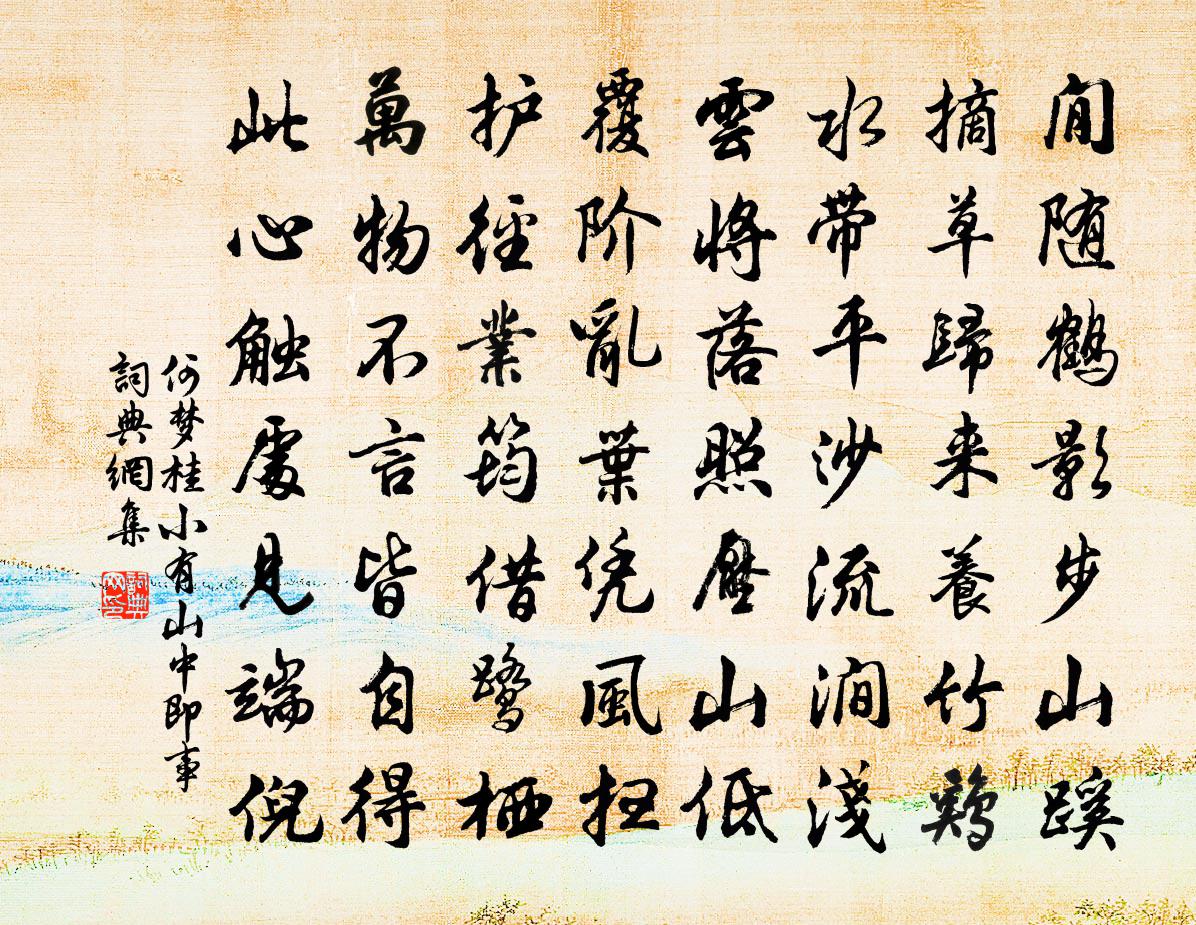 閒随鹤影步山蹊
摘草歸来養竹鷄
水带平沙流澗淺
雲將落照壓山低
覆阶亂葉凭風扫
护徑業筠借鹭栖
萬物不言皆自得
此心触處見端倪
何梦桂小有山中即事
詞典網集
詞典网印